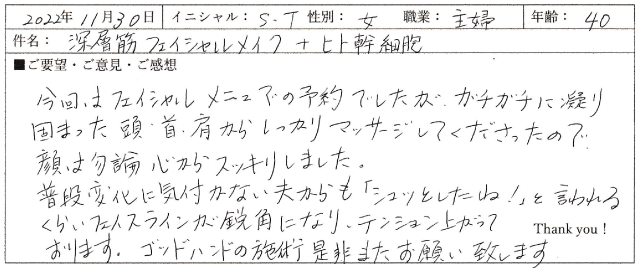 2022年11月30日 イニシャル：S.T 性別：女 職業：主婦 年齢：40
件名：深層筋フェイシャルメイク + ヒト幹細胞
■ご要望・ご意見・ご感想
今回はフェイシャルメニューでの予約でしたが、ガチガチに凝り
固まった頭、首、肩からしっかりマッサージしてくださったので
顔は勿論心からスッキリしました。
普段変化に気付かない夫からも「シュッとしたね！」と言われる
くらいフェイスラインが鋭角になり、テンション上がって
おります。ゴッドハンドの施術是非またお願い致します
Thank you！